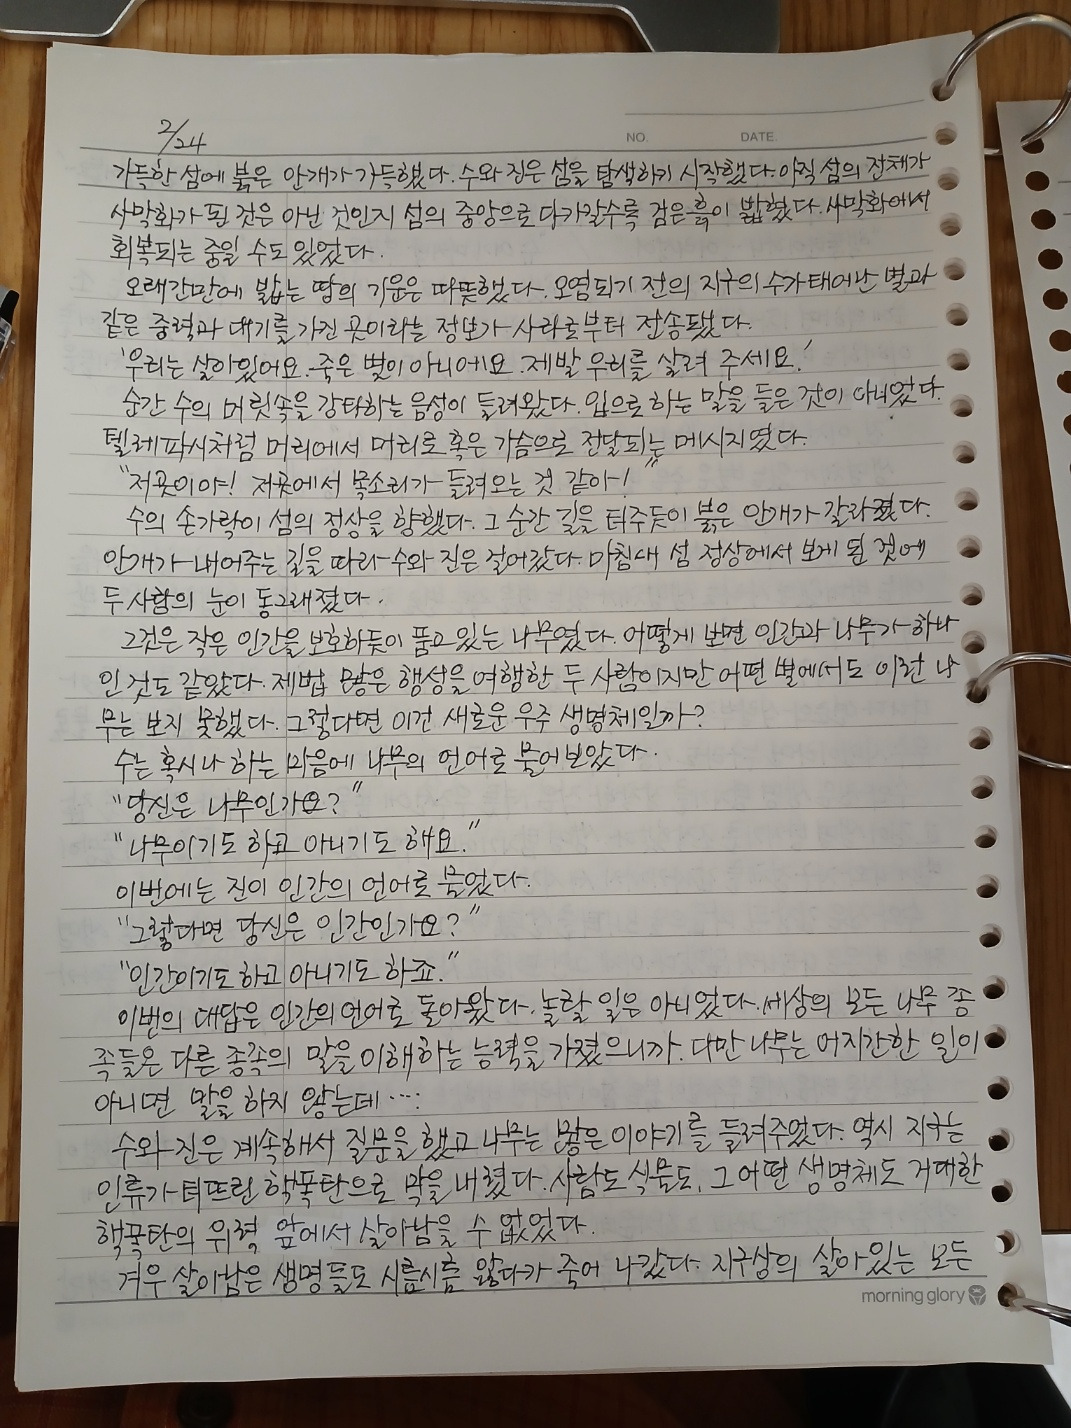 2/24
NO. DATE.
가득한 섬에 붉은 안개가 가득했다. 수와 진은 섬을 탐색하기 시작했다. 아직 섬의 전체가
사막화가 된 것은 아닌 것인지 섬의 중앙으로 다가갈수록 검은 흙이 밟혔다. 사막화에서
회복되는 중일 수도 있었다.
오래간만에 밟는 땅의 기운은 따뜻했다. 오염되기 전의 지구의 수가 태어난 별과
같은 중력과 대기를 가진 곳이라는 정보가 사라로부터 전송됐다.
'우리는 살아있어요. 죽은 별이 아니에요. 제발 우리를 살려 주세요.'
순간 수의 머릿속을 강타하는 음성이 들려왔다. 입으로 하는 말을 들은 것이 아니었다.
텔레파시처럼 머리에서 머리로 혹은 가슴으로 전달되는 메시지였다.
"저곳이야! 저곳에서 목소리가 들려오는 것 같아!"
수의 손가락이 섬의 정상을 향했다. 그 순간 길을 터주듯이 붉은 안개가 갈라졌다.
안개가 내어주는 길을 따라 수와 진은 걸어갔다. 마침내 섬 정상에서 보게 된 것에
두 사람의 눈이 동그래졌다.
그것은 작은 인간을 보호하듯이 품고 있는 나무였다. 어떻게 보면 인간과 나무가 하나
인 것도 같았다. 제법 많은 행성을 여행한 두 사람이지만 어떤 별에서도 이런 나
무는 보지 못했다. 그렇다면 이건 새로운 우주 생명체일까?
수는 혹시나 하는 마음에 나무의 언어로 물어보았다.
"당신은 나무인가요?"
"나무이기도 하고 아니기도 해요."
이번에는 진이 인간의 언어로 물었다.
"그렇다면 당신은 인간인가요?"
"인간이기도 하고 아니기도 하죠."
이번의 대답은 인간의 언어로 돌아왔다. 놀랄 일은 아니었다. 세상의 모든 나무 종
족들은 다른 종족의 말을 이해하는 능력을 가졌으니까. 다만 나무는 어지간한 일이
아니면 말을 하지 않는데….
수와 진은 계속해서 질문을 했고 나무는 많은 이야기를 들려주었다. 역시 지구는
인류가 터뜨린 핵폭탄으로 막을 내렸다. 사람도 식물도, 그 어떤 생명체도 거대한
핵폭탄의 위력 앞에서 살아남을 수 없었다.
겨우 살아남은 생명들도 시름시름 앓다가 죽어 나갔다. 지구상의 살아있는 모든
morning glory